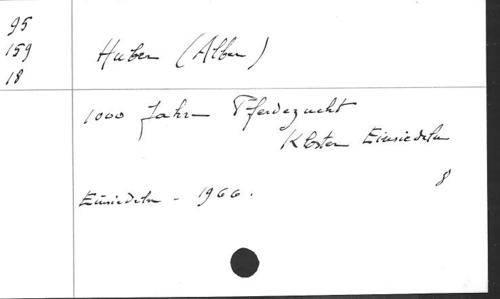 95
159
18
Huber (Alber)
1000 Jahre Pferdezucht
Kloster Einsiedeln
8
Einsiedeln - 1966.